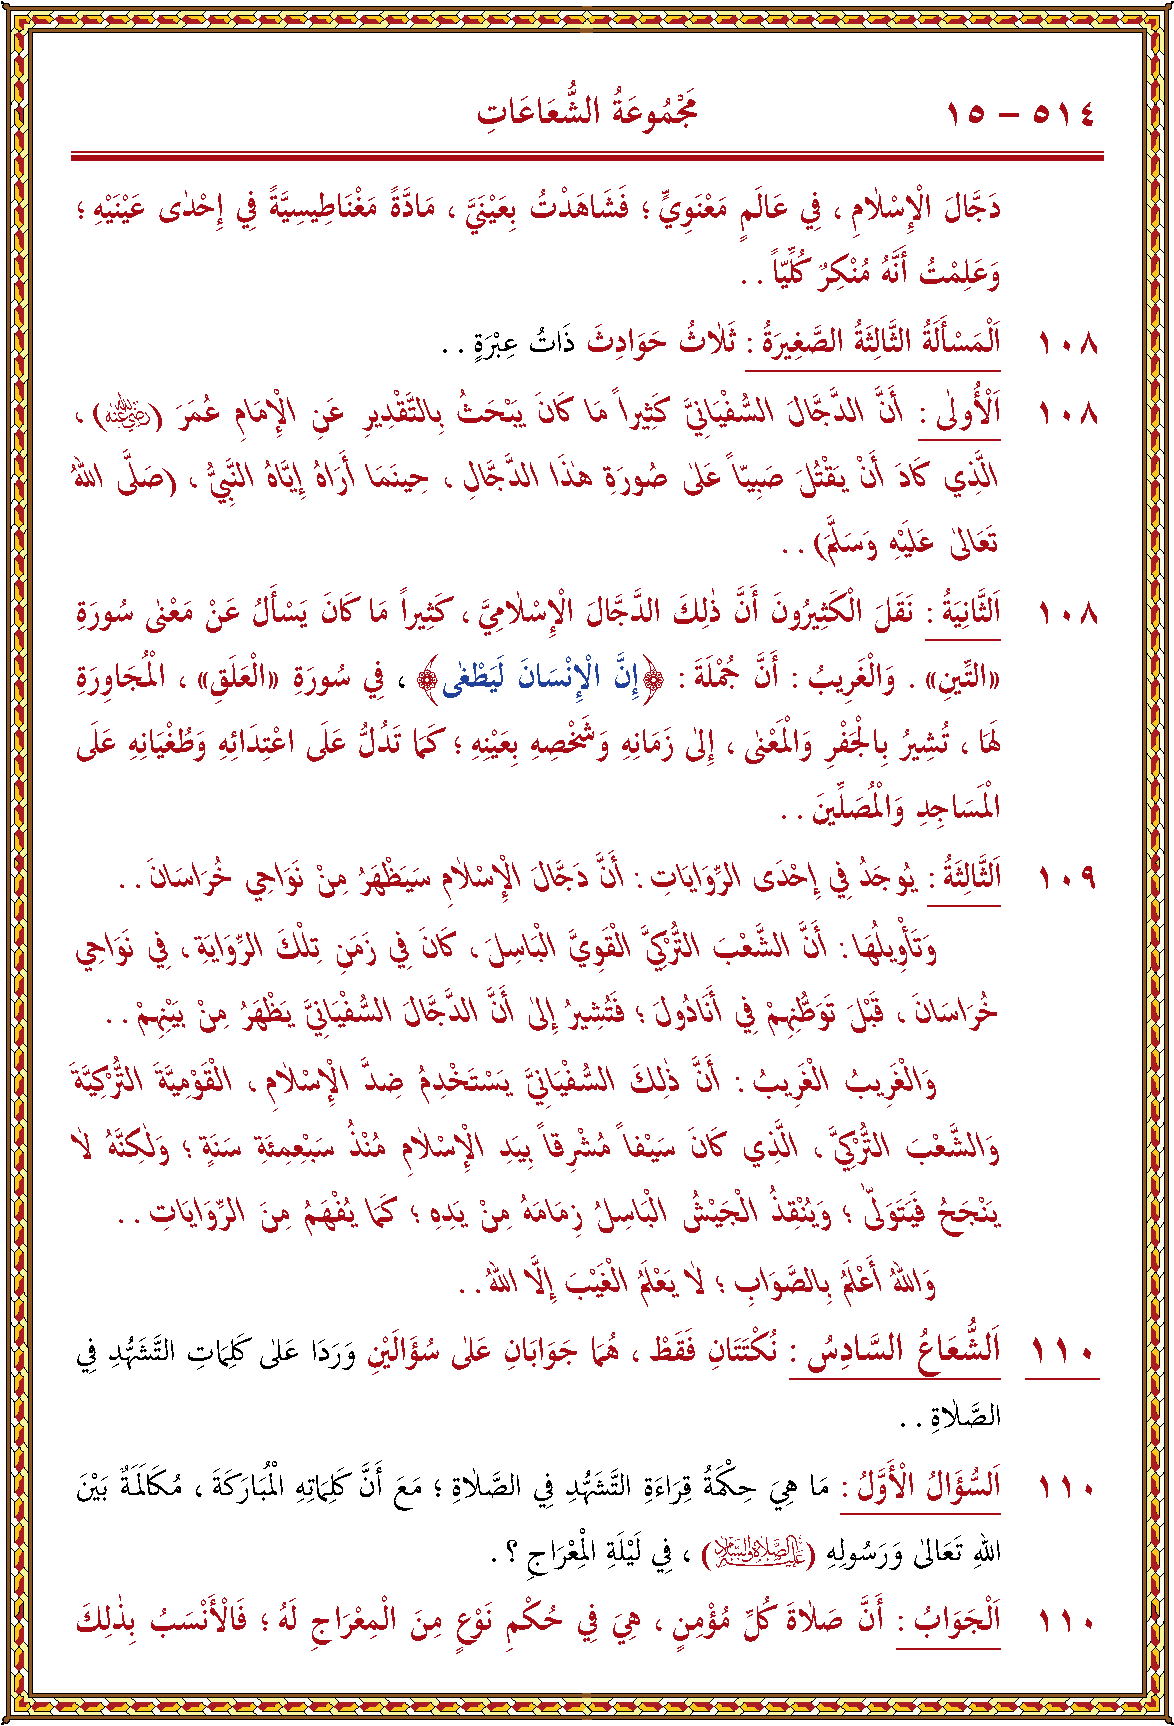 ٥١٤ – ١٥ مَجْمُوعَةُ الشُّعَاعَاتِ
دَجَّالَ الْاِسْلَامِ ، فِي عَالَمٍ مَعْنَوِيٍّ ؛ فَشَاهَدْتُ بِعَيْنَيَّ ، مَادَّةً مَغْنَاطِيسِيَّةً فِي إِحْدٰى عَيْنَيْهِ ؛
وَعَلِمْتُ أَنَّهُ مُنْكِرٌ كُلِّيّاً . .
١٠٨ اَلْمَسْأَلَةُ الثَّالِثَةُ الصَّغِيرَةُ : ثَلَاثُ حَوَادِثَ ذَاتُ عِبْرَةٍ . .
١٠٨ اَلْأُولٰى : أَنَّ الدَّجَّالَ السُّفْيَانِيَّ كَثِيراً مَا كَانَ يَبْحَثُ بِالتَّقْدِيرِ عَنِ الْاِمَامِ عُمَرَ (رضي الله عنه) ،
الَّذِي كَادَ أَنْ يَقْتُلَ صَبِيّاً عَلٰى صُورَةِ هٰذَا الدَّجَّالِ ، حِينَمَا أَرَاهُ إِيَّاهُ النَّبِيُّ ، (صَلَّى اللهُ
تَعَالٰى عَلَيْهِ وَسَلَّمَ) . .
١٠٨ اَلثَّانِيَةُ : نَقَلَ الْكَثِيرُونَ أَنَّ ذٰلِكَ الدَّجَّالَ الْإِسْلَامِيَّ ، كَثِيراً مَا كَانَ يَسْأَلُ عَنْ مَعْنٰى سُورَةِ
«التِّينِ» . وَالْغَرِيبُ : أَنَّ جُمْلَةَ : ﴿إِنَّ الْاِنْسَانَ لَيَطْغٰى﴾ ، فِي سُورَةِ «الْعَلَقِ» ، الْمُجَاوِرَةِ
لَهَا ، تُشِيرُ بِالْجَفْرِ وَالْمَعْنٰى ، إِلٰى زَمَانِهِ وَشَخْصِهِ بِعَيْنِهِ ؛ كَمَا تَدُلُّ عَلَى اعْتِدَائِهِ وَطُغْيَانِهِ عَلَى
الْمَسَاجِدِ وَالْمُصَلِّينَ . .
١٠٩ اَلثَّالِثَةُ : يُوجَدُ فِي إِحْدَى الرِّوَايَاتِ : أَنَّ دَجَّالَ الْاِسْلَامِ سَيَظْهَرُ مِنْ نَوَاحِي خُرَاسَانَ . .
وَتَأْوِيلُهَا : أَنَّ الشَّعْبَ التُّرْكِيَّ الْقَوِيَّ الْبَاسِلَ ، كَانَ فِي زَمَنِ تِلْكَ الرِّوَايَةِ ، فِي نَوَاحِي
خُرَاسَانَ ، قَبْلَ تَوَطُّنِهِمْ فِي أَنَادُولَ ؛ فَتُشِيرُ إِلٰى أَنَّ الدَّجَّالَ السُّفْيَانِيَّ يَظْهَرُ مِنْ بَيْنِهِمْ . .
وَالْغَرِيبُ الْغَرِيبُ : أَنَّ ذٰلِكَ السُّفْيَانِيَّ يَسْتَخْدِمُ ضِدَّ الْاِسْلَامِ ، الْقَوْمِيَّةَ التُّرْكِيَّةَ
وَالشَّعْبَ التُّرْكِيَّ ، الَّذِي كَانَ سَيْفاً مُشْرِقاً بِيَدِ الْاِسْلَامِ مُنْذُ سَبْعِمِئَةِ سَنَةٍ ؛ وَلٰكِنَّهُ لَا
يَنْجَحُ فَيَتَوَلّٰى ؛ وَيُنْقِذُ الْجَيْشُ الْبَاسِلُ زِمَامَهُ مِنْ يَدِهِ ؛ كَمَا يُفْهَمُ مِنَ الرِّوَايَاتِ . .
وَاللهُ أَعْلَمُ بِالصَّوَابِ ؛ لَا يَعْلَمُ الْغَيْبَ إِلَّا اللهُ . .
١١٠ اَلشُّعَاعُ السَّادِسُ : نُكْتَتَانِ فَقَطْ ، هُمَا جَوَابَانِ عَلٰى سُؤَالَيْنِ وَرَدَا عَلٰى كَلِمَاتِ التَّشَهُّدِ فِي
الصَّلَاةِ . .
١١٠ اَلسُّؤَالُ الْأَوَّلُ : مَا هِيَ حِكْمَةُ قِرَاءَةِ التَّشَهُّدِ فِي الصَّلَاةِ ؛ مَعَ أَنَّ كَلِمَاتِهِ الْمُبَارَكَةَ ، مُكَالَمَةٌ بَيْنَ
اللهِ تَعَالٰى وَرَسُولِهِ (عليه الصلاة والسلام) ، فِي لَيْلَةِ الْمِعْرَاجِ ؟ .
١١٠ اَلْجَوَابُ : أَنَّ صَلَاةَ كُلِّ مُؤْمِنٍ ، هِيَ فِي حُكْمِ نَوْعٍ مِنَ الْمِعْرَاجِ لَهُ ؛ فَالْأَنْسَبُ بِذٰلِكَ